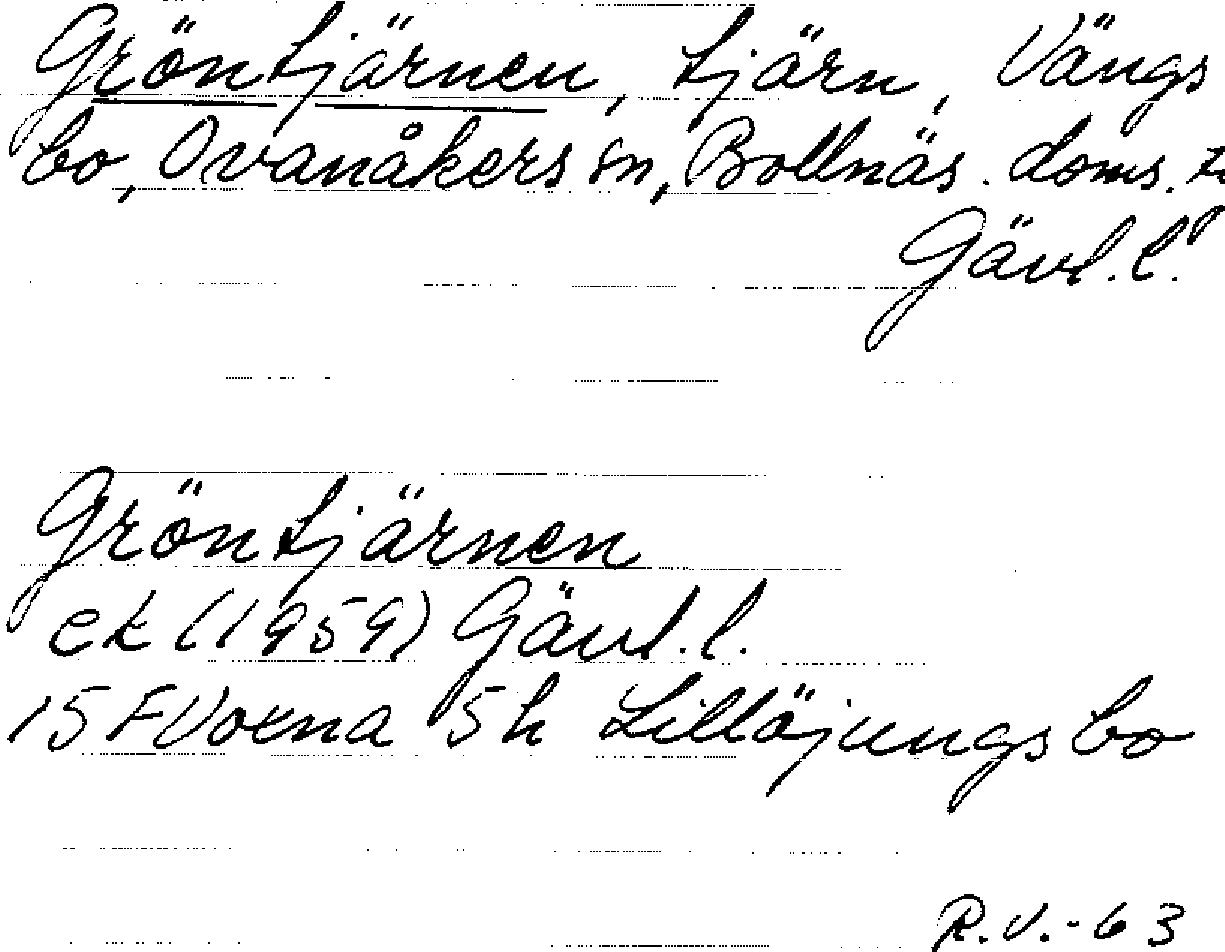 Gröntjärnen, tjärn, Vängs
bo, Ovanåkers sn, Bollnäs doms.
Gävl.l.
Gröntjärnen
ek (1959) Gävl.l.
15 F Voxna 5h Lillöjungsbo
R.V.-63